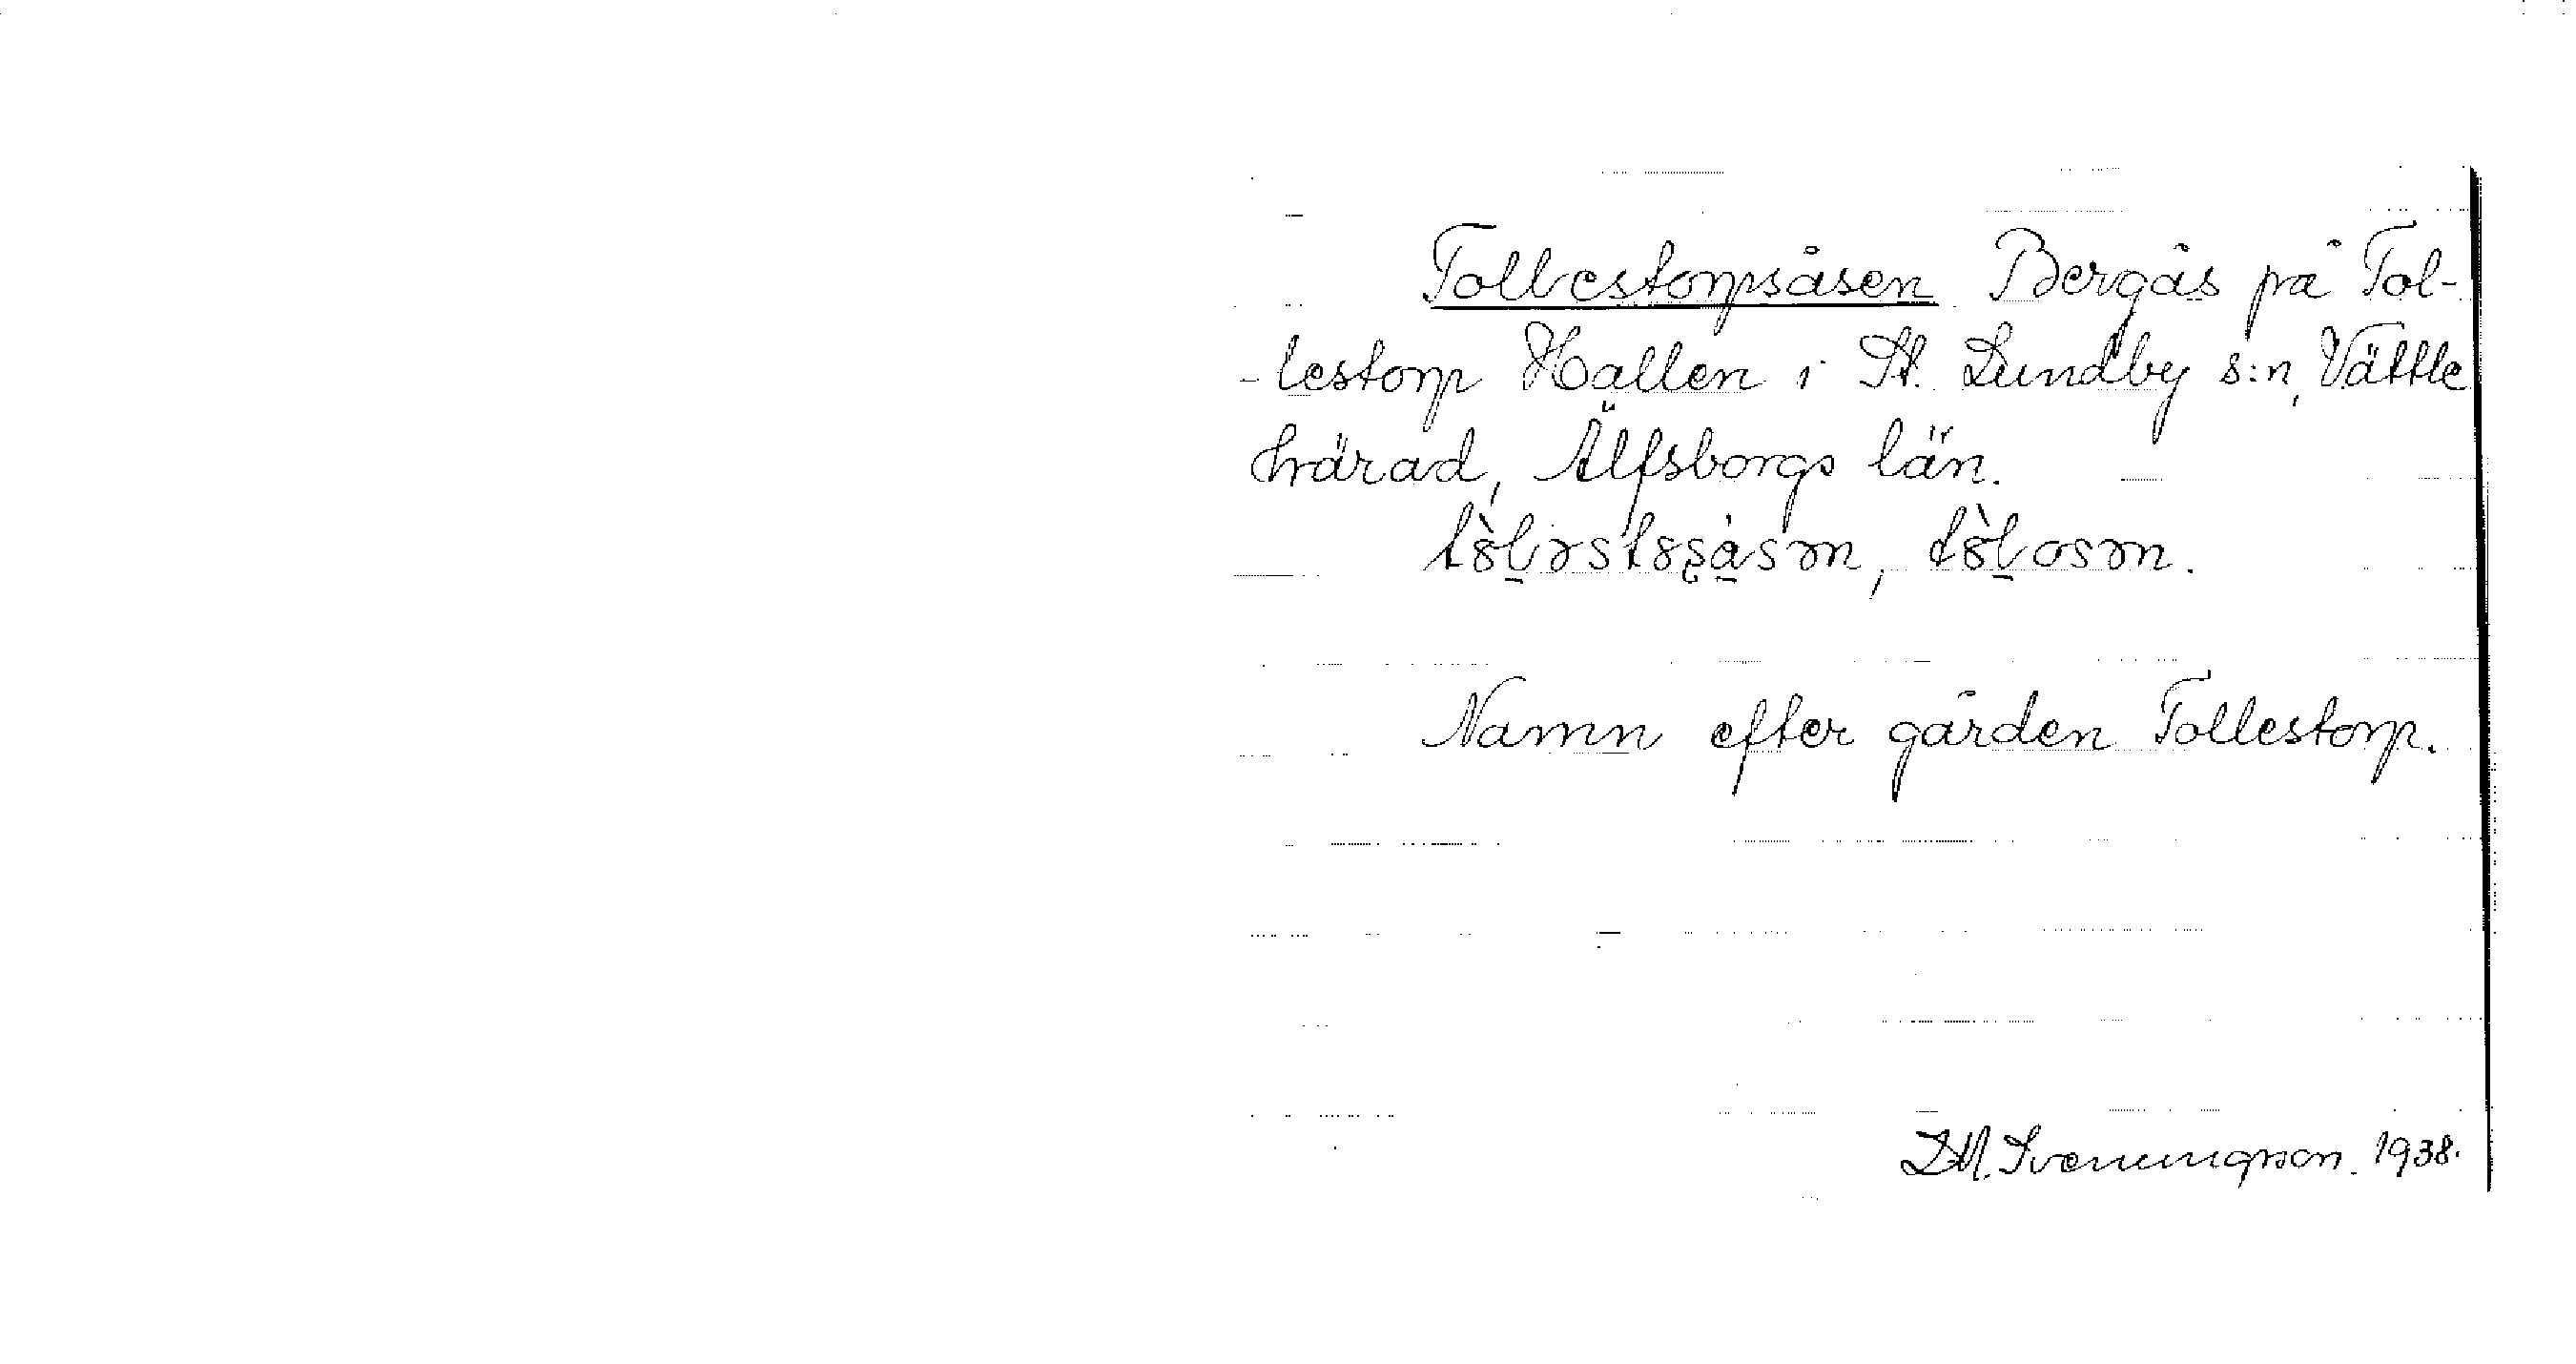 Tollestorpsåsen Bergås på Tol-
-lestorp Hallen i St. Lundby s:n, Vättle
härad, Älfsborgs län.
Namn efter gården Tollestorp.
D.M. Svenningson. 1938.